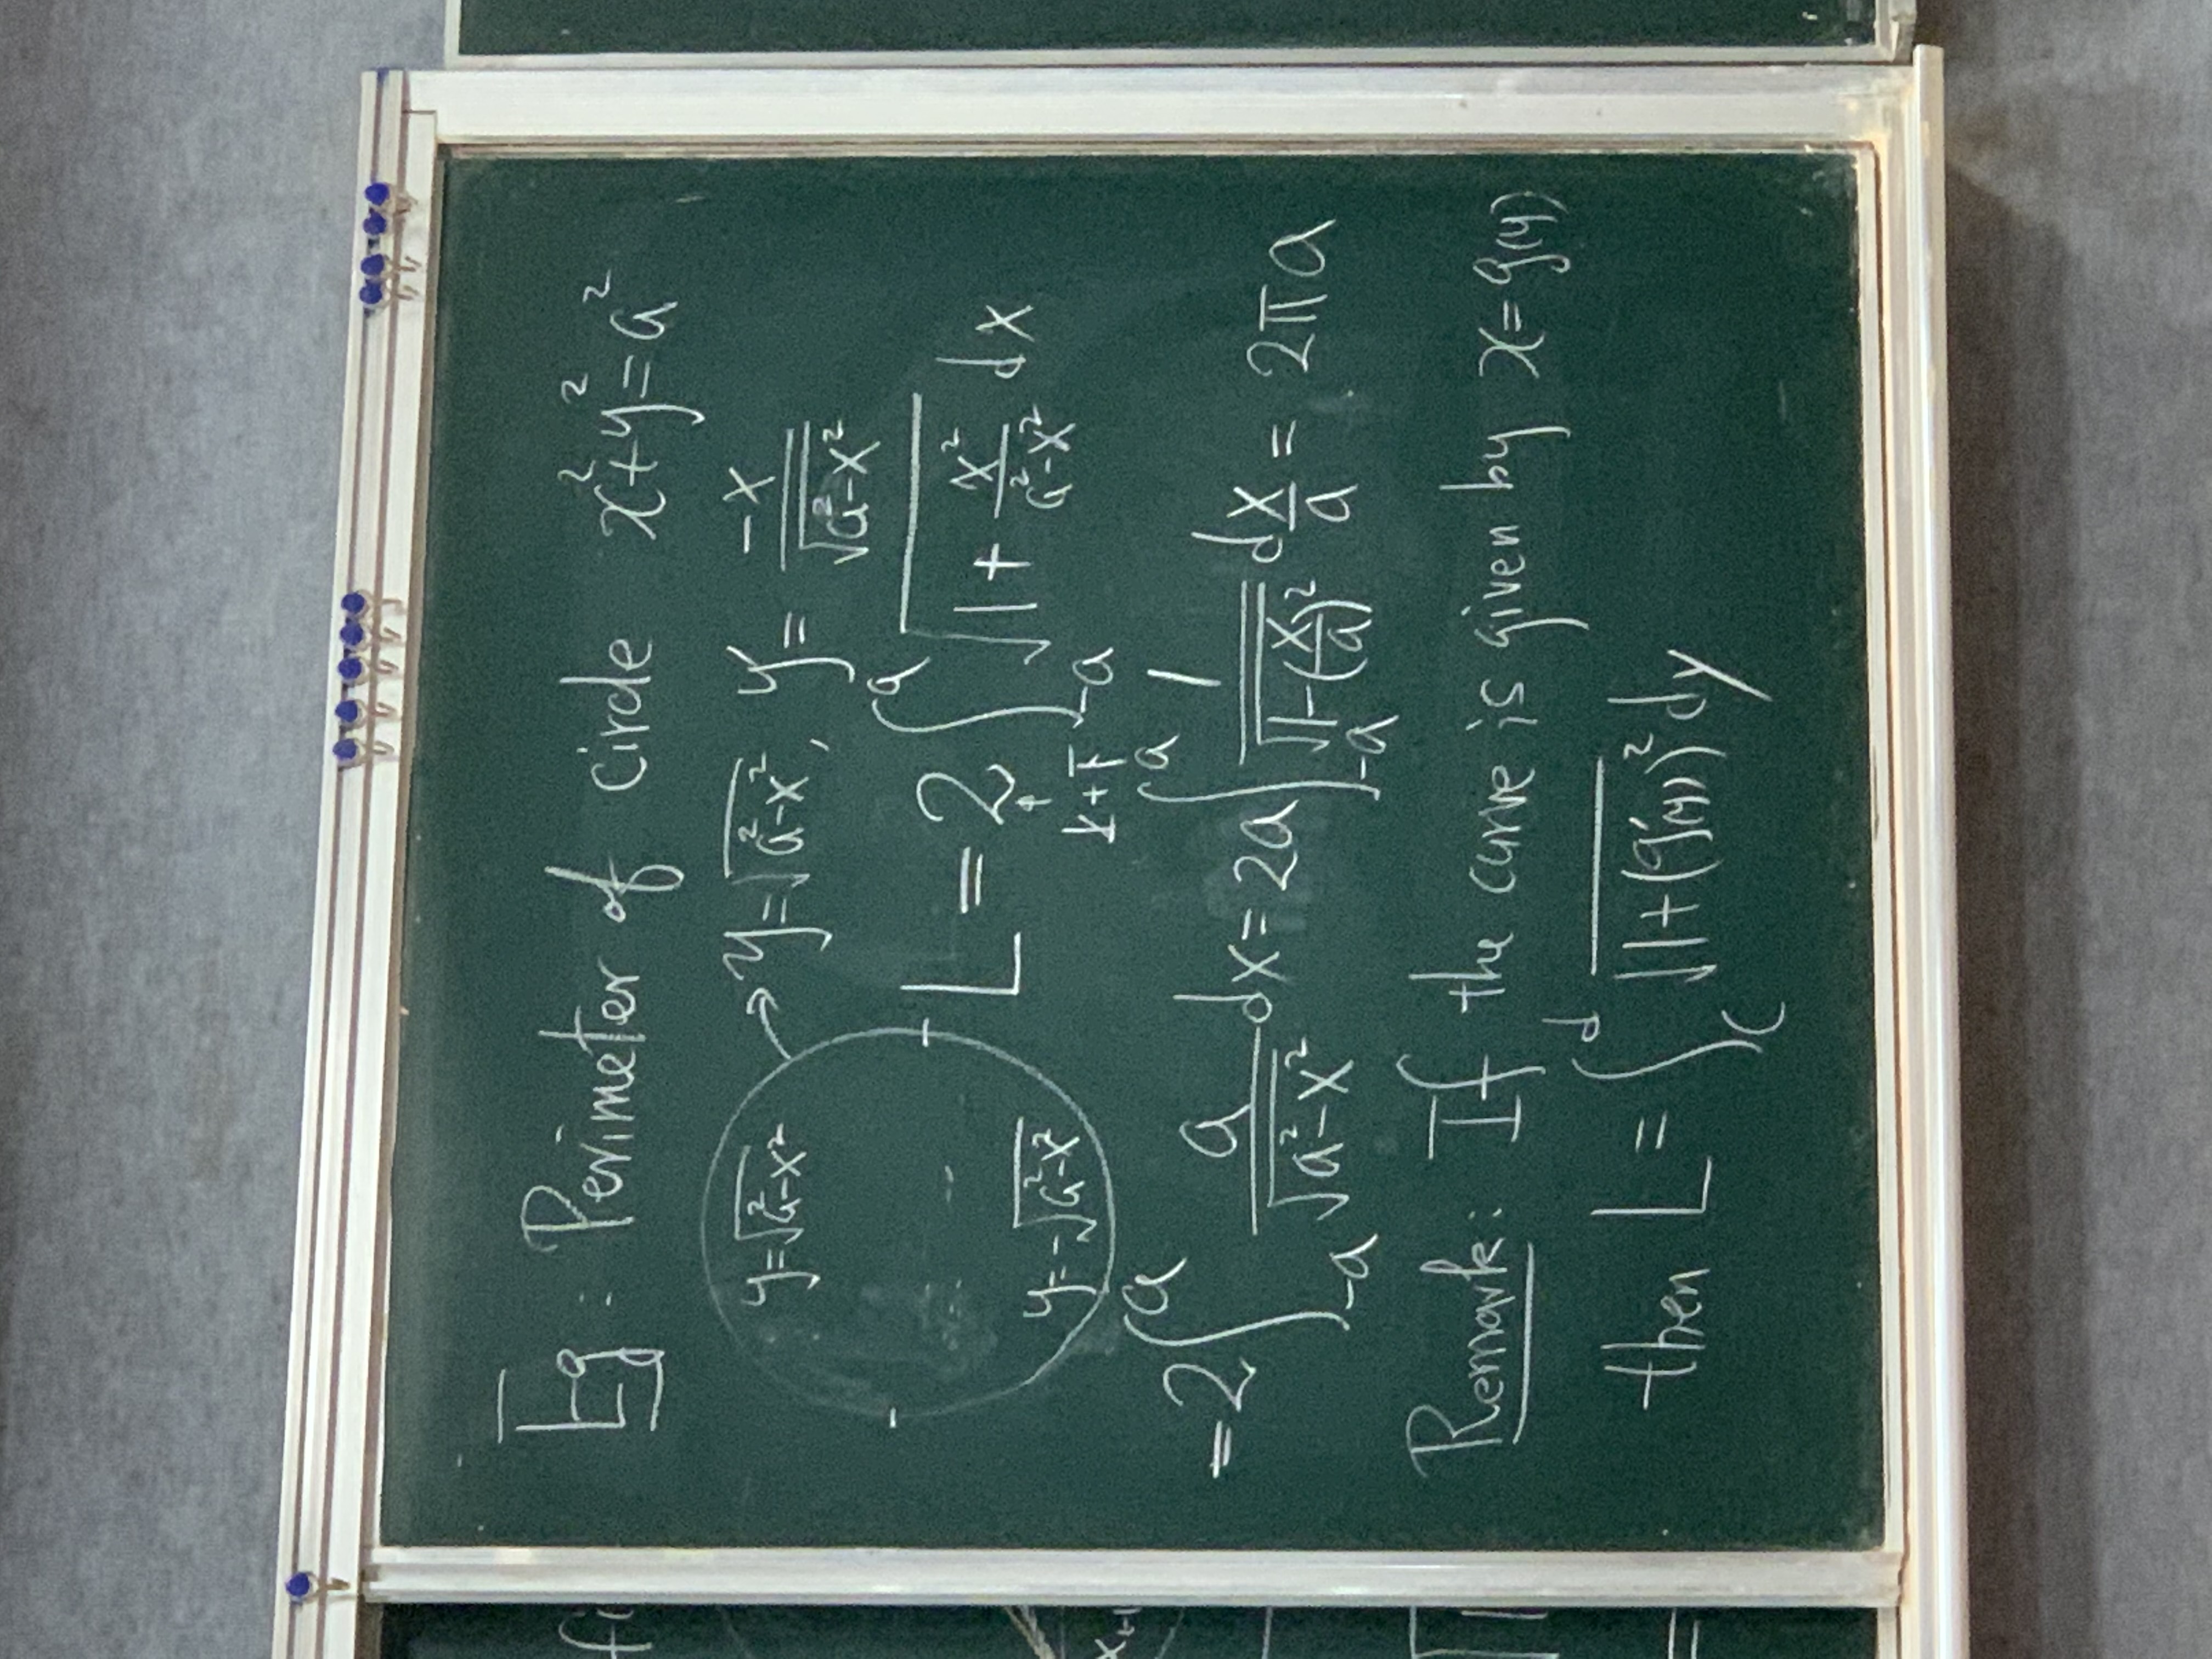 Eg: Perimeter of Circle x²+y²=a²
y=√(a²-x²) → y=√(a²-x²), y' = -x/√(a²-x²)
L = 2 ∫_{-a}^{a} √(1+ x²/(a²-x²)) dx
y=-√(a²-x²)
=2 ∫_{-a}^{a} a/√(a²-x²) dx = 2a ∫_{-a}^{a} 1/√(1-(x/a)²) d x/a = 2πa
Remark: If the curve is given by x=g(y)
then L = ∫_c^d √(1+(g'(y))²) dy